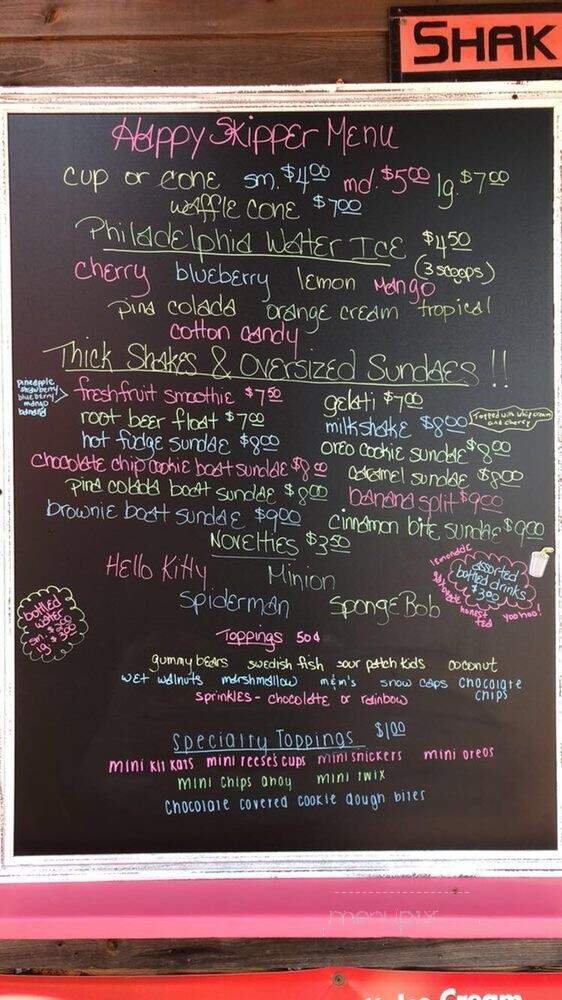 SHAK
Happy Skipper Menu
cup or cone sm. $4.00 md. $5.00 lg. $7.00
waffle cone $7.00
Philadelphia Water Ice $4.50
(3 scoops)
cherry blueberry lemon mango
pina colada orange cream tropical
cotton candy
Thick Shakes & Oversized Sundaes !!
pineapple
strawberry
blueberry
mango
banana
fresh fruit smoothie $7.50 gelati $7.00
root beer float $7.00 milkshake $8.00
Topped with whip cream
and cherry
hot fudge sundae $8.00 oreo cookie sundae $8.00
chocolate chip cookie boat sundae $8.00 caramel sundae $8.00
pina colada boat sundae $8.00 banana split $9.00
brownie boat sundae $9.00 cinnamon bite sundae $9.00
Novelties $3.50
Hello Kitty Minion
Spiderman SpongeBob
lemonade
assorted
bottled drinks
$3.00
honest
tea
yoohoo!
bottled
water
sm.
lg. $3.00
Toppings 50¢
gummy bears swedish fish sour patch kids coconut
wet walnuts marshmallow m&m's snow caps chocolate
chips
sprinkles - chocolate or rainbow
Specialty Toppings $1.00
mini kit kats mini reese's cups mini snickers mini oreos
mini chips ahoy mini twix
chocolate covered cookie dough bites
menupix
Ice Cream